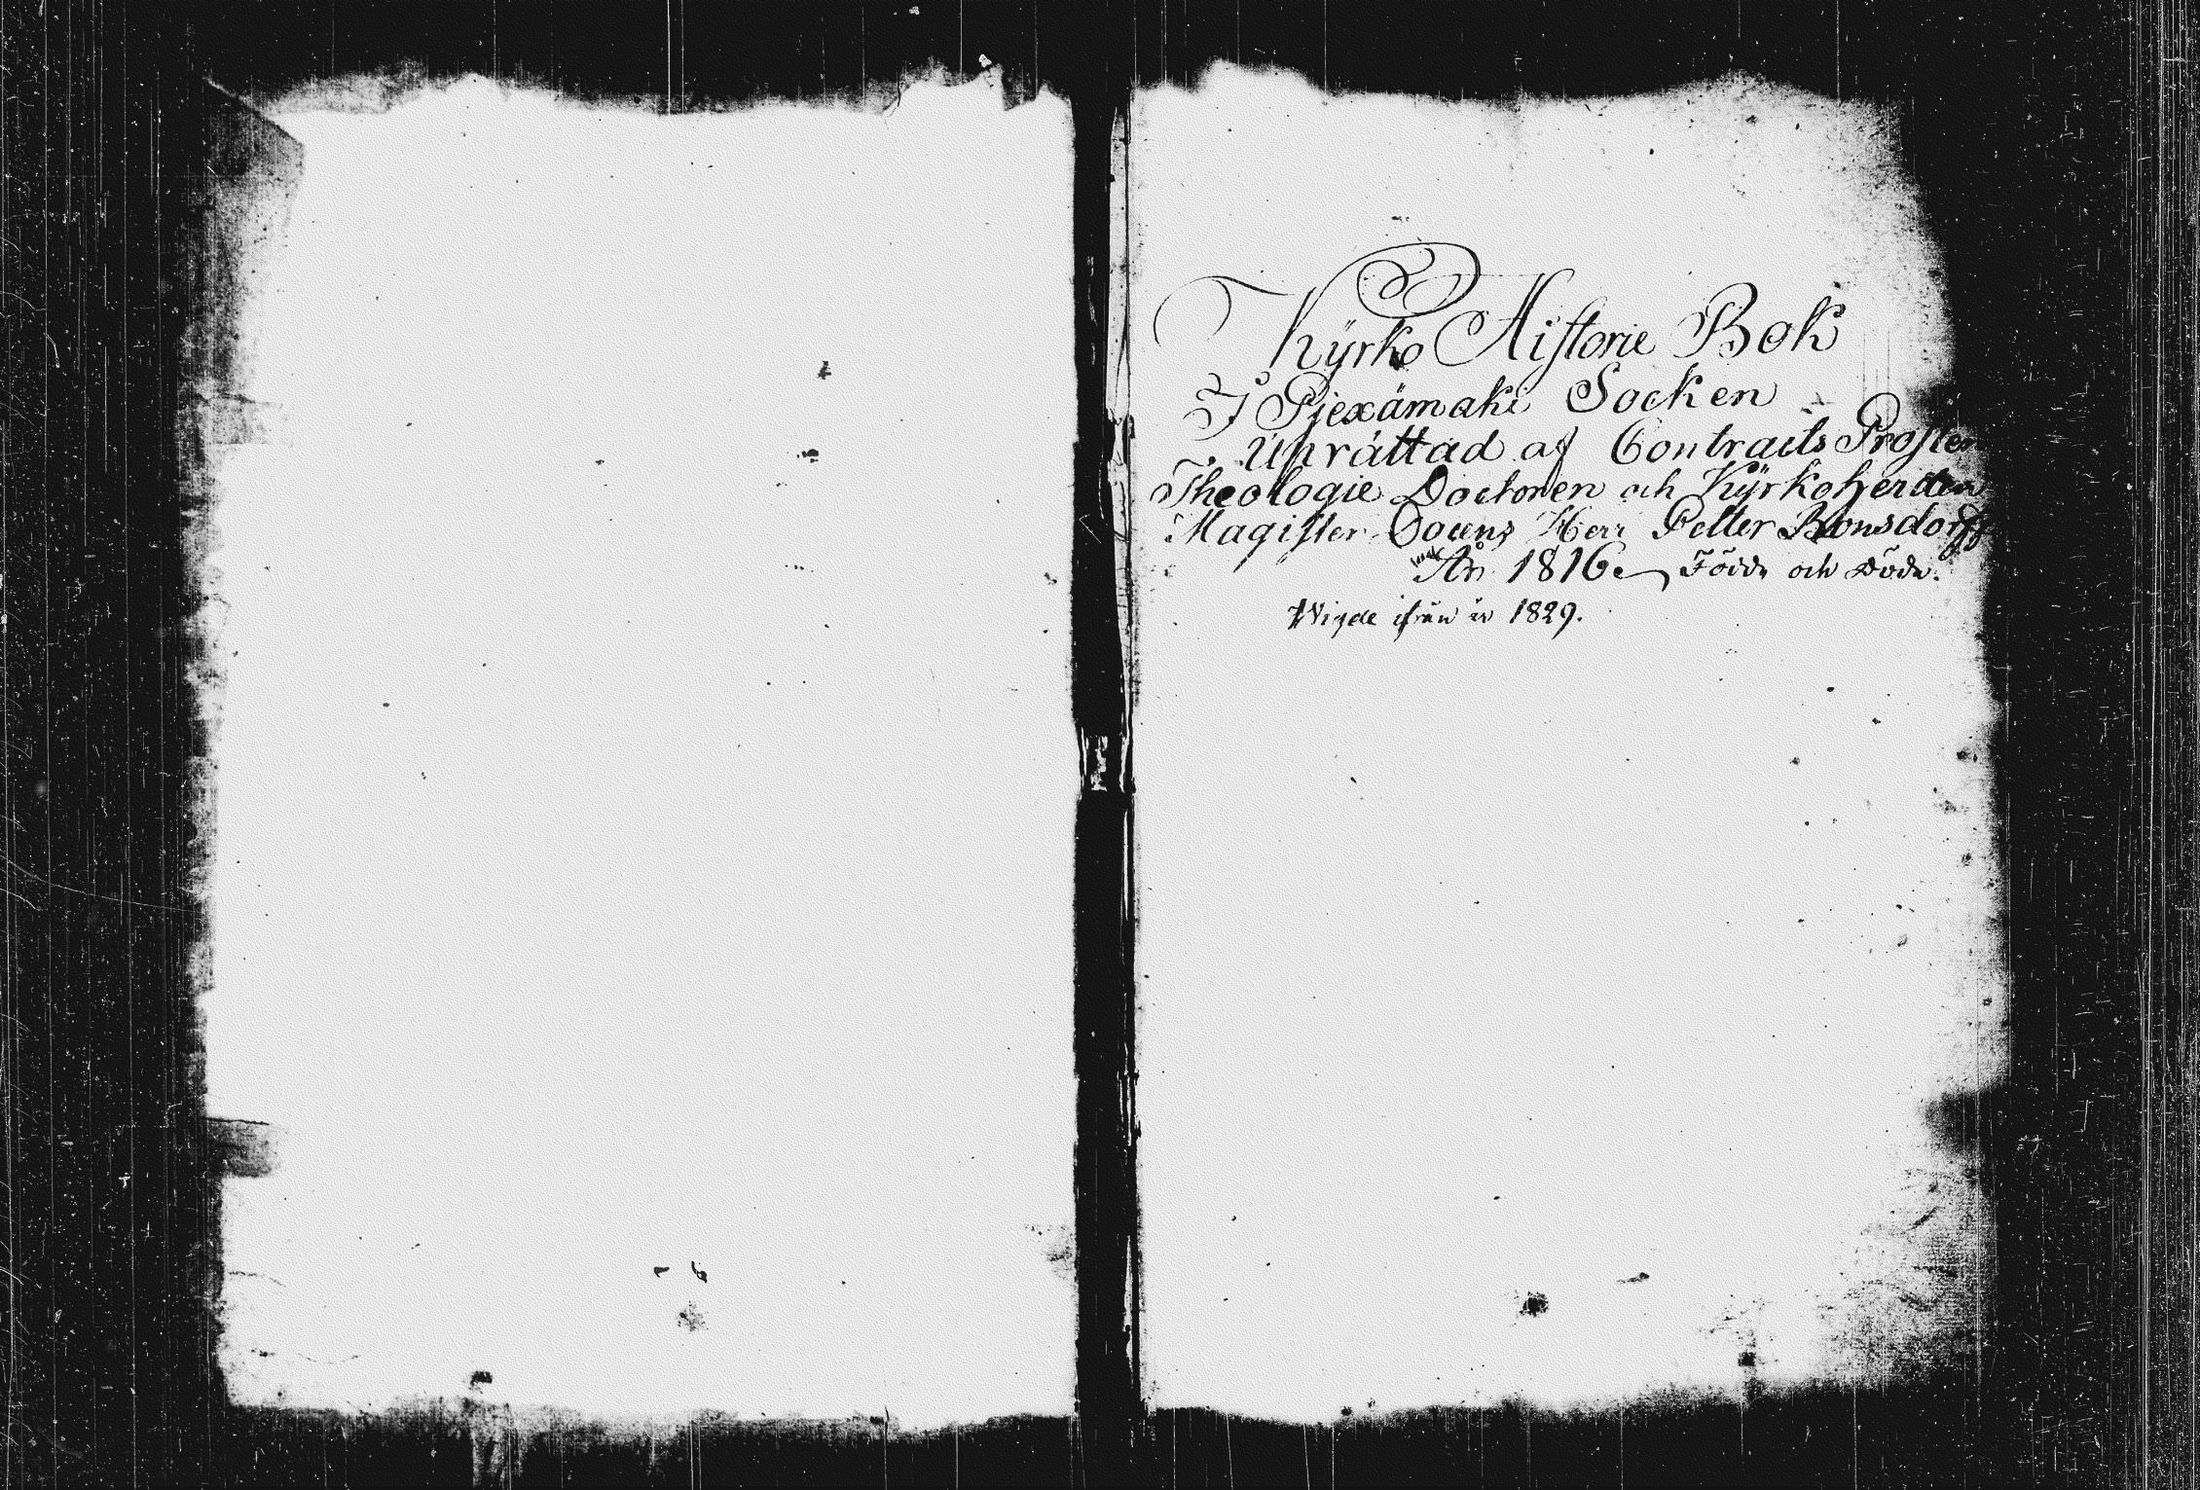 Kÿrko Historie Bok
I Pjexämaki Socken
Uprättad af Contracts Prosten
Theologie Doctoren och Kÿrkoherden
Magister Docens Herr Petter Bonsdorff
År 1816. Födde och Döde.
Wigde ifrån år 1829.